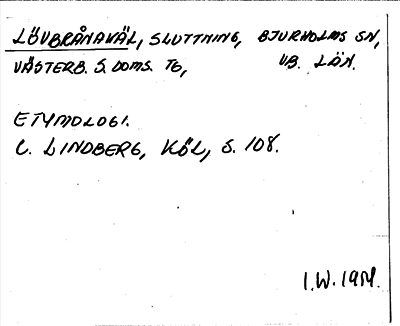 LÖVBRÅNAVÄL, SLUTTNING, BJURHOLMS SN,
VÄSTERB. S. DOMS. TG, VB. LÄN.
ETYMOLOGI.
C. LINDBERG, KÖL, S. 108.
I.W.